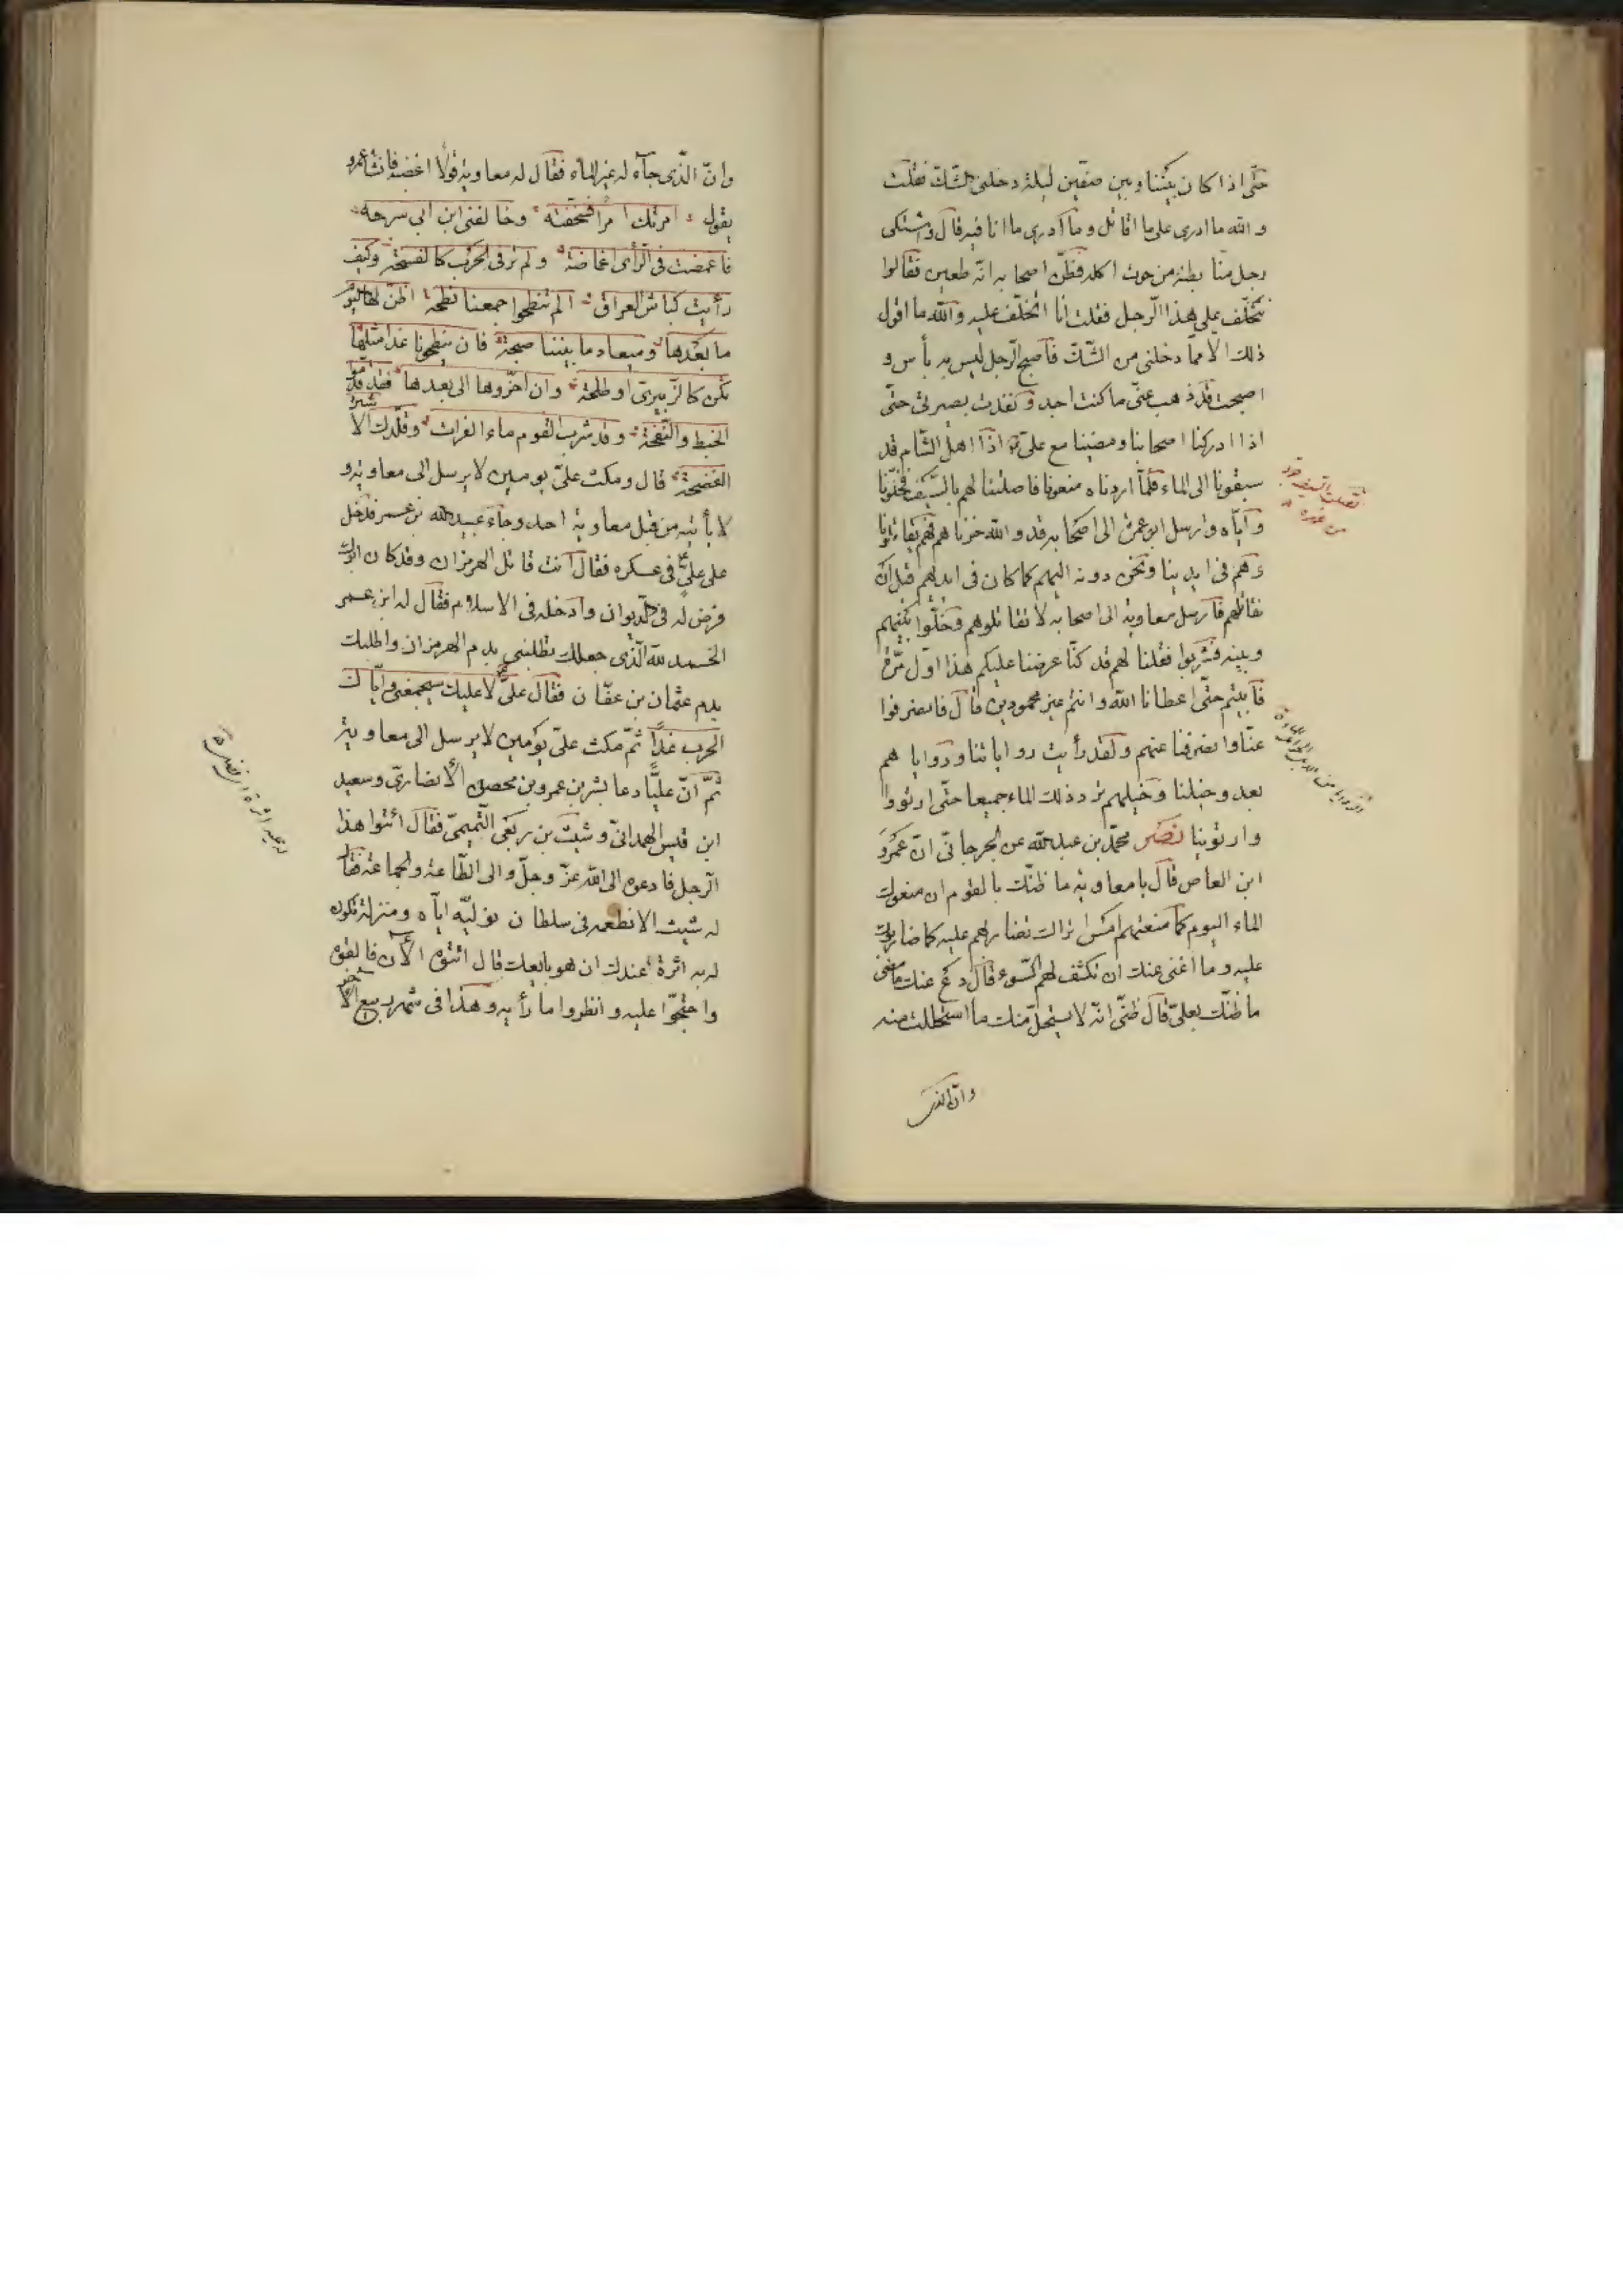 حتّى اذا كان بيننا وبين صفّين ليلة دخلنى الشّكّ فقلت
والله ما ادرى على ما اقاتل وما ادرى ما انا فيه قال واشتكى
رجل منّا بطنه من حوت اكله فظنّ اصحابه انّه طعين فقالوا
نتخلّف على هذا الرّجل فقلت انا اتخلّف عليه والله ما اقول
ذلك الا ممّا دخلنى من الشّكّ فاصبح الرّجل ليس به بأس و
اصبحت قد ذهب عنّى ما كنت اجد و نفذت بصيرتى حتّى
اذا ادركنا اصحابنا ومضينا مع علىّ اذا اهل الشّام قد
سبقونا الى الماء فلمّا اردناه منعونا فاصلتنا لهم بالسّيف فخلّونا
وايّاه وارسل الى اصحابه قد والله جزناهم فهم يقاتلونا
وهم فى ايدينا ونحن دونه اليهم كما كان فى ايديهم قبل ان
نقاتلهم فارسل معاوية الى اصحابه لا تقاتلوهم وخلّوا بينهم
وبينه فشربوا فقلنا لهم قد كنّا عرضنا عليكم هذا اوّل مرّة
فأبيتم حتّى اعطانا الله وانتم غير محمودين قال فانصرفوا
عنّا وانصرفنا عنهم ولقد رأيت روايانا وروايا هم
بعد وخيلنا وخيلهم ترد ذلك الماء جميعا حتّى ارتووا
وارتوينا نصر محمّد بن عبدالله عن الجرجانىّ انّ عمرو
ابن العاص قال يا معاوية ما ظنّك بالقوم ان منعوك
الماء اليوم كما منعتهم امس اتراك تضاربهم عليه كما ضاربوك
عليه وما اغنى عنك ان تكشف لهم السّوء قال دع عنك ما مضى
ما ظنّك بعلىّ قال ظنّى انّه لا يستحلّ منك ما استحللت منه
وانّ الذى
وانّ الّذى جاء له غير الماء فقال له معاوية قولا اغضبه فانشأ عمرو
يقول امرتك امرا فسخّفته وخالفنى ابن ابى سرحه
فاغمضت فى الرّأى اغماضة ولم تر فى الحرب كالفسحة وكيف
رأيت كباش العراق الم ينطحوا جمعنا نطحه اظنّ لها اليوم
ما بعدها وميعاد ما بيننا صبحة فان ينطحونا غدا مثلها
نكن كالزّبيرىّ او طلحة وان اخّروها الى بعدها فقد قدّموا
الخبط والنّفحة وقد شرب القوم ماء الفرات وقلّدك الاشتر
الفضحة قال ومكث علىّ يومين لا يرسل الى معاوية و
لا يأتيه من قبل معاوية احد وجاء عبيدالله بن عمر فدخل
على علىّ فى عسكره فقال انت قاتل الهرمزان وقد كان ابوك
فرض له فى الدّيوان وادخله فى الاسلام فقال له ابن عمر
الحمد لله الّذى جعلك تطلبنى بدم الهرمزان واطلبك
بدم عثمان بن عفّان فقال علىّ لا عليك سيجمعنى وايّاك
الحرب غدا ثمّ مكث علىّ يومين لا يرسل الى معاوية
ثمّ انّ عليّا دعا بشر بن عمرو بن محصن الأنصارىّ وسعيد
ابن قيس الهمدانىّ وشبث بن ربعى التّميمىّ فقال ائتوا هذا
الرّجل فادعوه الى الله عزّ وجلّ والى الطّاعة والجماعة فقال
له شبث الا نطمعه فى سلطان تولّيه ايّاه ومنزلة تكون
له به اثرة عندك ان هو بايعك قال ائتوه الآن فالقوه
واحتجّوا عليه وانظروا ما رأيه وهذا فى شهر ربيع الآخر